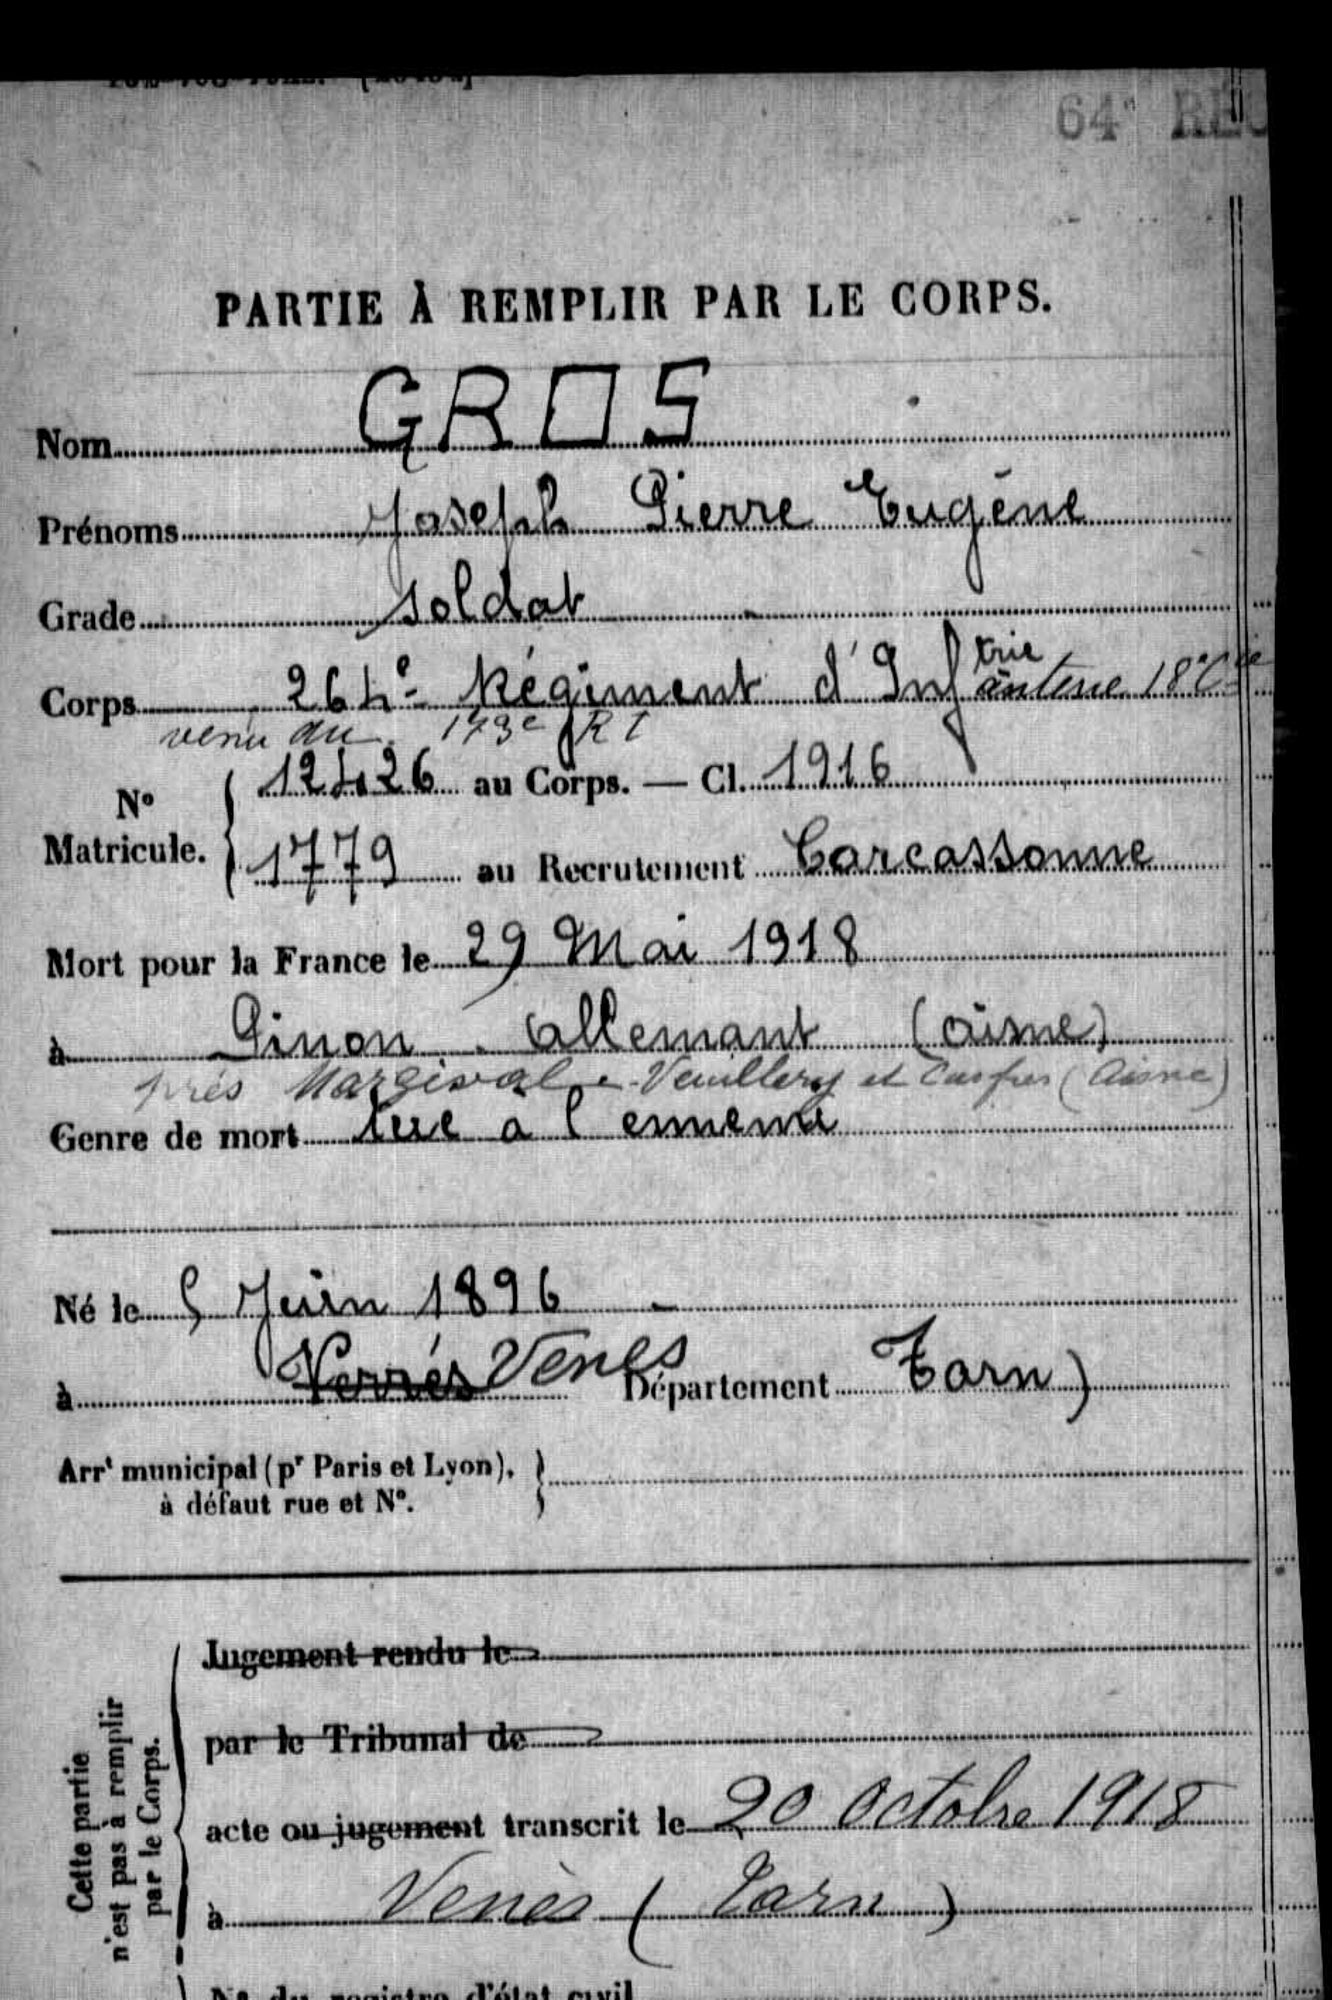 64e RÉG
PARTIE À REMPLIR PAR LE CORPS.
Nom GROS
Prénoms Joseph Pierre Eugène
Grade Soldat
Corps 264e Régiment d'Infanterie trie 18e Cie
venu du 173e RI
No Matricule. 12426 au Corps. — Cl. 1916
1779 au Recrutement Carcassonne
Mort pour la France le 29 Mai 1918
à Pinon. Allemant (aisne)
près Margival - Veuillery et (Aisne)
Genre de mort tué à l'ennemi
Né le 5 Juin 1896
à Verrès Venès Département Tarn)
Arrt municipal (pr Paris et Lyon),
à défaut rue et No.
Cette partie
n'est pas à remplir
par le Corps.
Jugement rendu le
par le Tribunal de
acte ou jugement transcrit le 20 Octobre 1918
à Venès (Tarn)
No du registre d'état civil